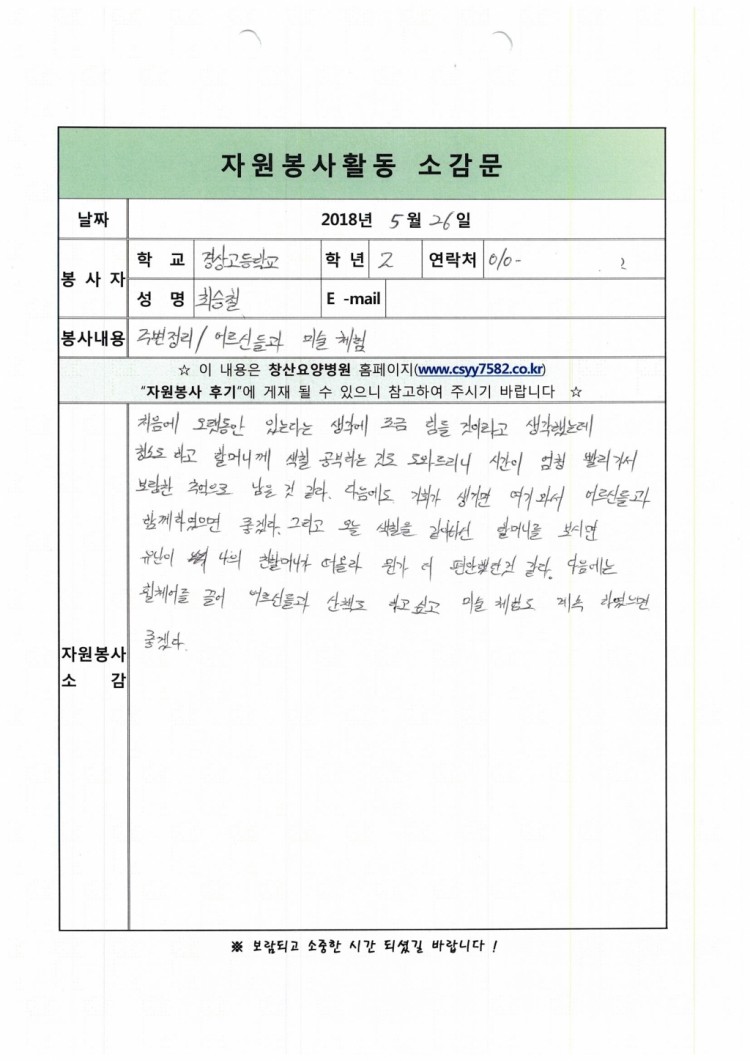 자원봉사활동 소감문
날짜 2018년 5월 26일
봉사자 학교 경상고등학교 학년 2 연락처 010-
성명 최승철 E -mail
봉사내용 주변정리/ 어르신들과 미술 체험
☆ 이 내용은 창산요양병원 홈페이지(www.csyy7582.co.kr)
"자원봉사 후기"에 게재 될 수 있으니 참고하여 주시기 바랍니다 ☆
자원봉사
소 감
처음에 오랫동안 있는다는 생각에 조금 힘들 것이라고 생각했는데
청소도 하고 할머니께 색칠 공부하는 것도 도와드리니 시간이 엄청 빨리가서
보람찬 추억으로 남을 것 같다. 다음에도 기회가 생기면 여기 와서 어르신들과
함께하였으면 좋겠다. 그리고 오늘 색칠을 같이하신 할머니를 보시면
유난이 나의 친할머니가 떠올라 뭔가 더 편안했던것 같다. 다음에는
휠체어를 끌어 어르신들과 산책도 하고 싶고 미술 체험도 계속 하였으면
좋겠다.
※ 보람되고 소중한 시간 되셨길 바랍니다 !